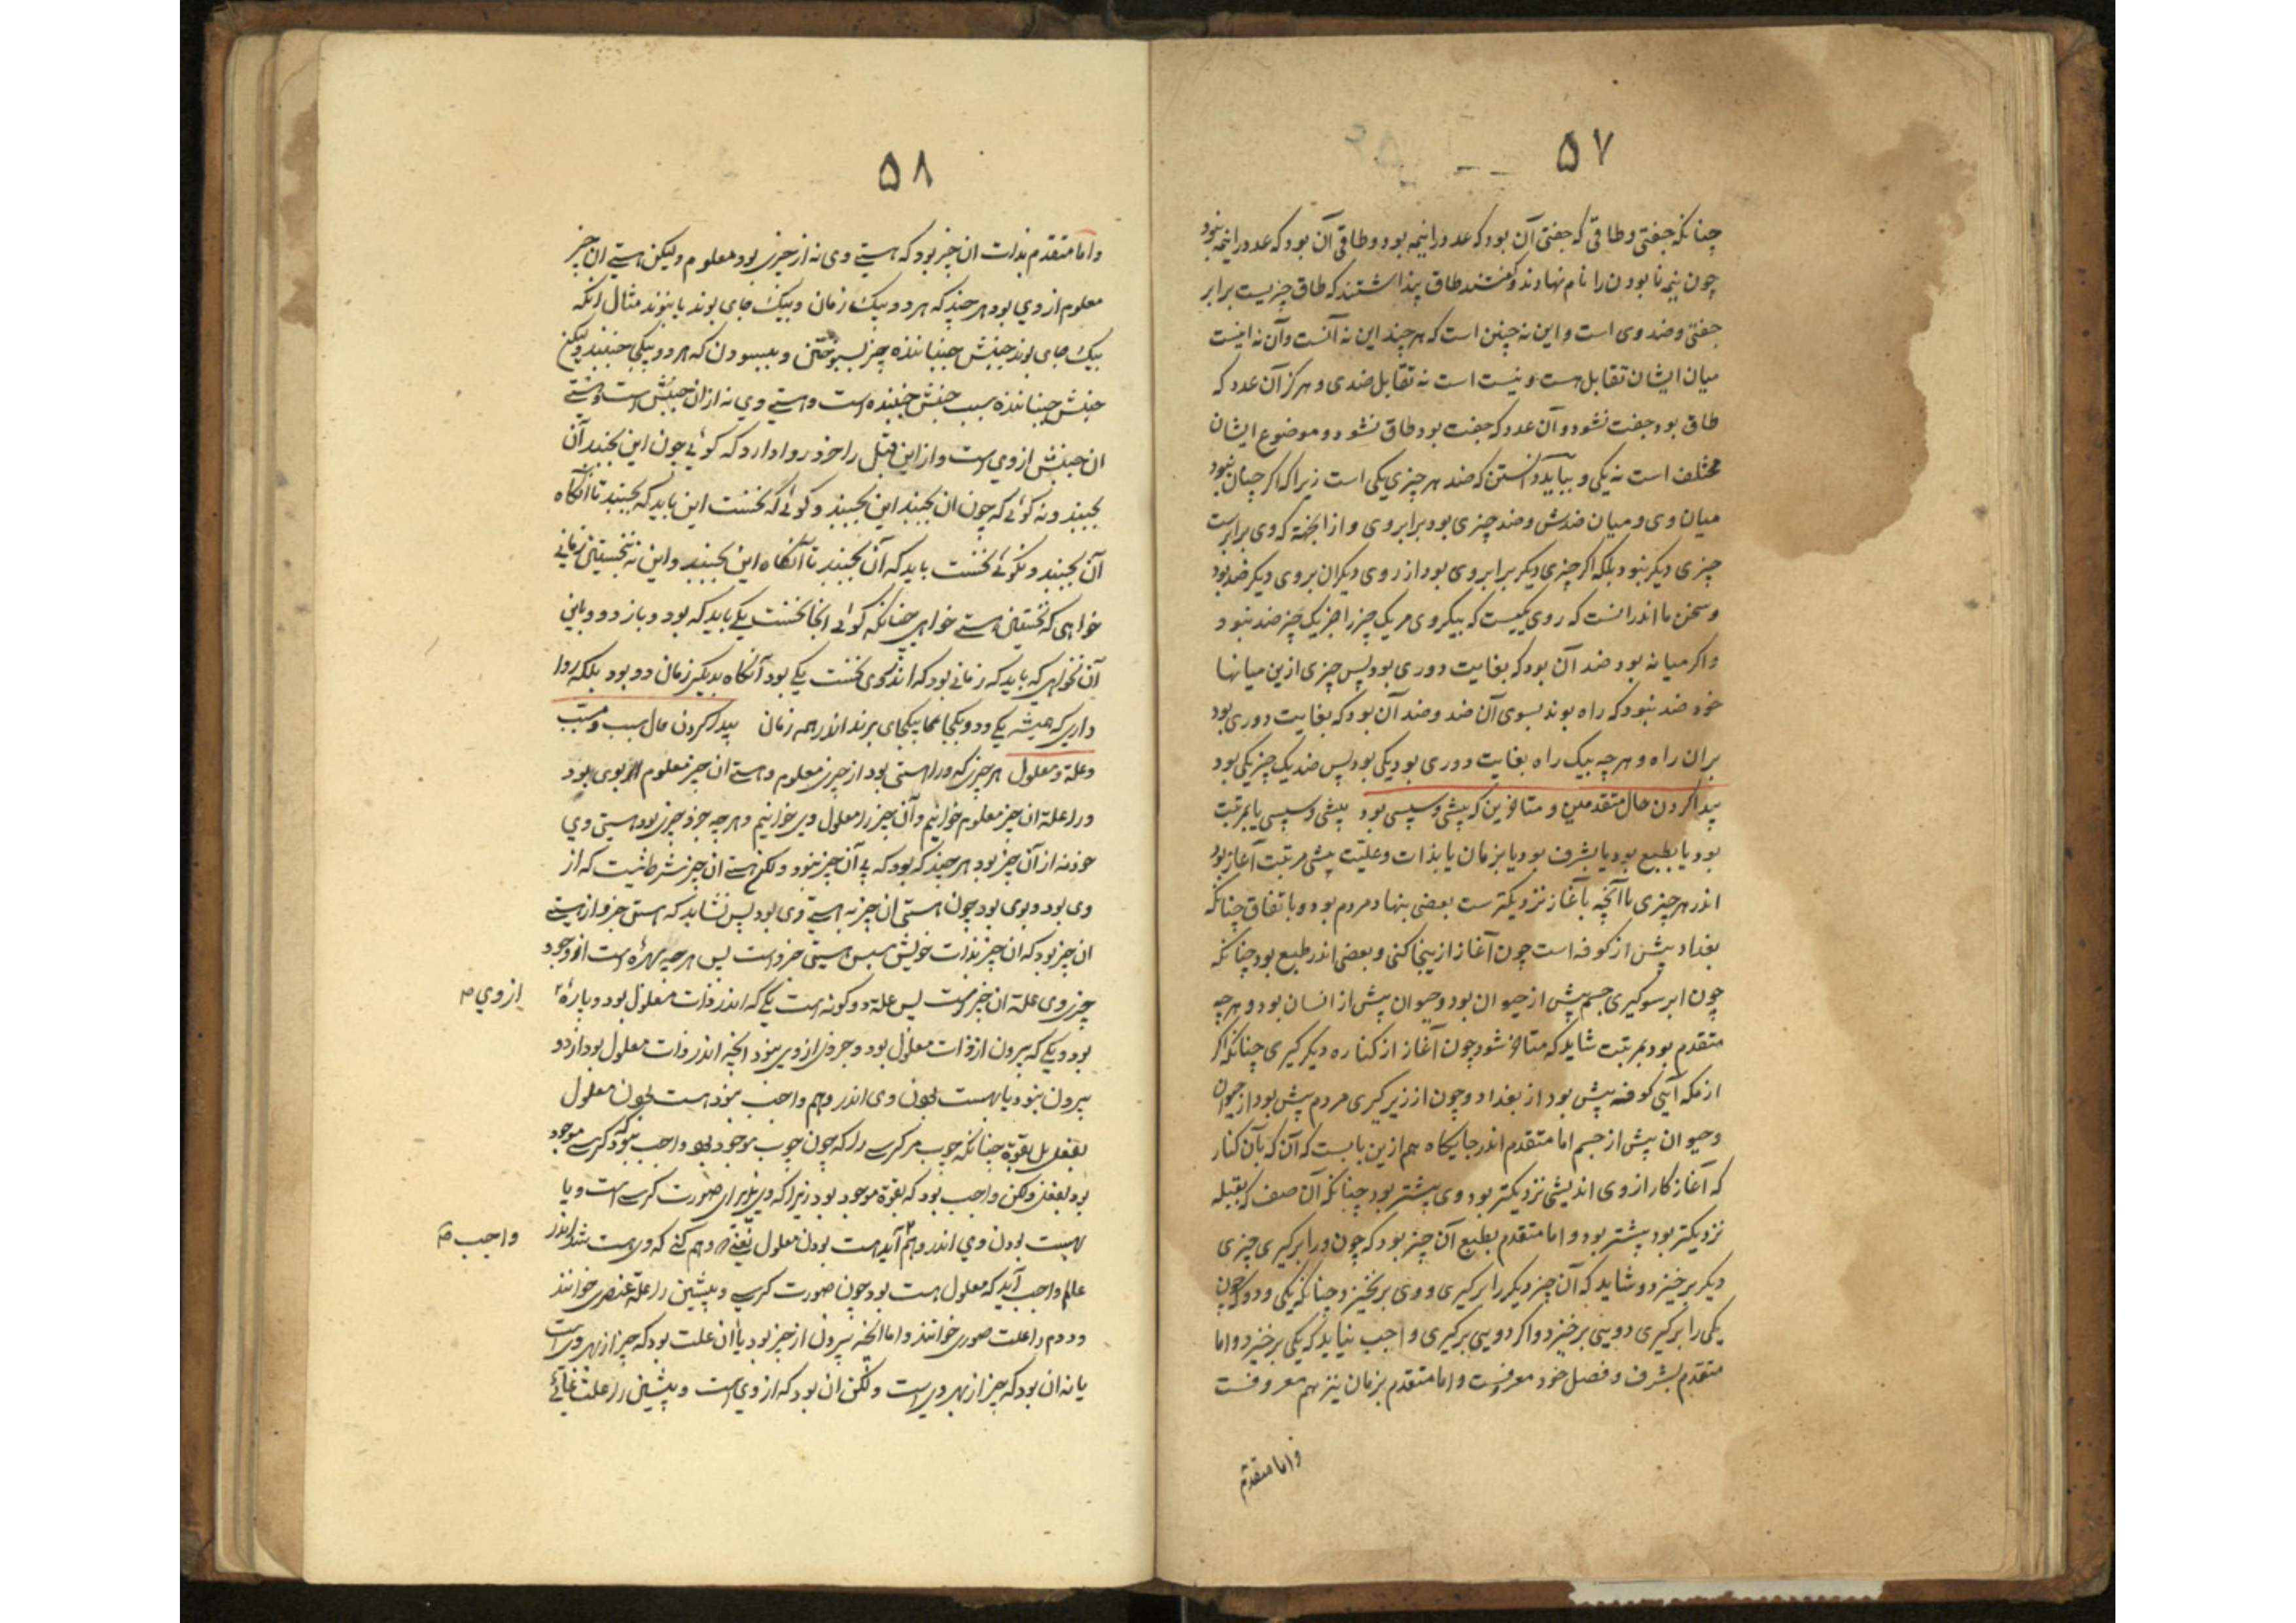 ۵۷
چنانکه جفتی و طاقی که جفتی آن بود که عدد را نیمه بود و طاقی آن بود که عدد را نیمه نبود
چون نیمه نابودن را نام نهادند و گفتند طاق پنداشتند که طاق چیزیست برابر
جفتی و ضد وی است و این نه چنین است که هر چند این نه آنست و آن نه اینست
میان ایشان تقابل هست و نیست است نه تقابل ضدی و هرگز آن عدد که
طاق بود جفت نشود و آن عدد که جفت بود طاق نشود و موضوع ایشان
مختلف است نه یکی و بباید دانستن که ضد هر چیزی یکی است زیرا که اگر چنان نبود
میان وی و میان ضدش و ضد چیزی بود برابر وی و از آن جهة که وی برابرست
چیزی دیگر نبود بلکه اگر چیزی دیگر برابر وی بود از روی دیگر آن بروی دیگر ضد بود
و سخن ما اندر آنست که روی یکیست که بیکروی مر یک چیز را جز یک چیز ضد نبود و
و اگر میانه بود ضد آن بود که بغایت دوری بود پس چیزی ازین میانها
خود ضد نبود که راه بوند بسوی آن ضد و ضد آن بود که بغایت دوری بود
بران راه و هر چه بیک راه بغایت دوری بود یکی بود پس ضد یک چیز یکی بود
پیدا کردن حال متقدمین و متاخرین که پیشی و سپسی بود پیشی و سپسی یا بمرتبت
بود یا بطبع بود یا بشرف بود یا بزمان یا بذات و علیّت پیشی مرتبت آغاز بود
اندر هر چیزی با آنچه بآغاز نزدیکترست بعضی بنهاد مردم بود و باتفاق چنانکه
بغداد پیش از کوفه است چون آغاز ازینجا کنی و بعضی اندر طبع بود چنانکه
چون ابر سو گیری جسم پیش از حیوان بود و حیوان پیش از انسان بود و هر چه
متقدم بود بمرتبت شاید که متاخر شود چون آغاز از کناره دیگر گیری چنانکه اگر
از مکه آیی کوفه پیش بود از بغداد و چون از زیر گیری مردم پیش بود از حیوان
و حیوان پیش از جسم اما متقدم اندر جایگاه هم ازین بابست که آن که بآن کنار
که آغاز کار از وی اندیشی نزدیکتر بود وی پیشتر بود چنانکه آن صف که بقبله
نزدیکتر بود پیشتر بود و اما متقدم بطبع آن چیز بود که چون ورا برگیری چیزی
دیگر برخیزد و شاید که آن چیز دیگر را برگیری و وی برنخیزد چنانکه یکی و دو که چون
یکی را برگیری دویی برخیزد و اگر دویی برگیری واجب نیاید که یکی برخیزد و اما
متقدم بشرف و فضل خود معروفست و اما متقدم بزمان نیز هم معروفست
و اما متقدم
۵۸
و اما متقدم بذات ان چیز بود که هستی وی نه از چیزی بود معلوم ولیکن هستی ان چیز
معلوم از وی بود هر چند که هر دو بیک زمان و بیک جای بوند یا نبوند مثال آنکه
بیک جای بوند جنبش جنباننده چیز و ببسودن که هر دو بیکی جنبند ولیکن
جنبش جنباننده سبب جنبش جنبنده است و هستی وی نه از ان جنبش است و هستی
ان جنبش از وی است و از این قبل را خرد روا دارد که گوئی چون این بجنبد آن
بجنبد و نه گوئی که چون ان بجنبد این بجنبد و گوئی که نخست این باید که بجنبد تا آنگاه
آن بجنبد و نگوئی نخست باید که آن بجنبد تا آنگاه این بجنبد و این نه نخستینی زمانی
خواهی که نخستینی هستی خواهی چنانکه گوئی انجا نخست یکی باید که بود و باز دو و باین
آن نخواهی که باید که زمانی بود که اندر وی نخست یکی بود آنگاه بدیگر زمان دو بود بلکه روا
داری که همیشه یکی و دو بیکجای برند اندر همه زمان پیدا کردن حال سبب و مسبب
و علة و معلول هر چیزی که ورا هستی بود از چیزی معلوم و هستی ان چیز معلوم بوی بود
ورا علة ان چیز معلوم خوانیم و آن چیز را معلول وی خوانیم و هر چه جزو چیزی بود هستی وی
خود نه از آن چیز بود هر چند که بود که بی آن چیز نبود ولکن هستی ان چیز شرط نیست که از
وی بود و بوی بود چون هستی ان چیز نه هستی وی بود پس نشاید که هستی جزو از هستی
ان چیز بود که ان چیز بذات خویش سپس هستی جزو است پس هر چه بهره است از وجود
چیزی وی علة ان چیز است پس علة دو گونه است یکی که اندر ذات معلول بود و پاره
از وی م
بود و یکی که بیرون از ذات معلول بود و جزوی از وی نبود انچه اندر ذات معلول بود از دو
بیرون نبود یا بهست بودن وی اندر وهم واجب نبود هست بودن معلول
بفعل بل بقوّة چنانکه چوب مر کرسی را که چون چوب موجود بود واجب نبود که کرسی موجود
بود بفعل ولکن واجب بود که بقوة موجود بود زیرا که وی پذیرای صورت کرسی است و یا
بهست بودن وی اندر وهم آید هست بودن معلول یعنی وهم کنی که وی هست شد اندر
واجب م
عالم واجب آید که معلول هست بود چون صورت کرسی و پیشین را علّة عنصری خوانند
و دوم را علت صوری خوانند و اما انچه بیرون از چیز بود یا ان علت بود که چیز از بهر ویست
یا نه ان بود که چیز از بهر وی است ولکن ان بود که از وی است و پیشین را علّت غائی